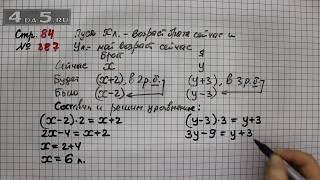 4DA5.RU
Стр. 84 Пусть X л. - возраст брата сейчас и
№ 287 Y л. - мой возраст сейчас
Брат Я
Сейчас x y
Будет (x+2), в 2 р.б. (y+3), в 3 р.б.
Было (x-2) (y-3)
Составим и решим уравнение:
(x-2)·2 = x+2 (y-3)·3 = y+3
2x-4 = x+2 3y-9 = y+3
x = 2+4
x = 6 л.